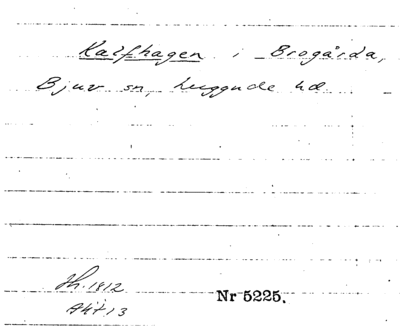 Kalfhagen i Brogårda,
Bjuv sn, Luggude hd.
Jh. 1812
Akt 13
Nr 5225.